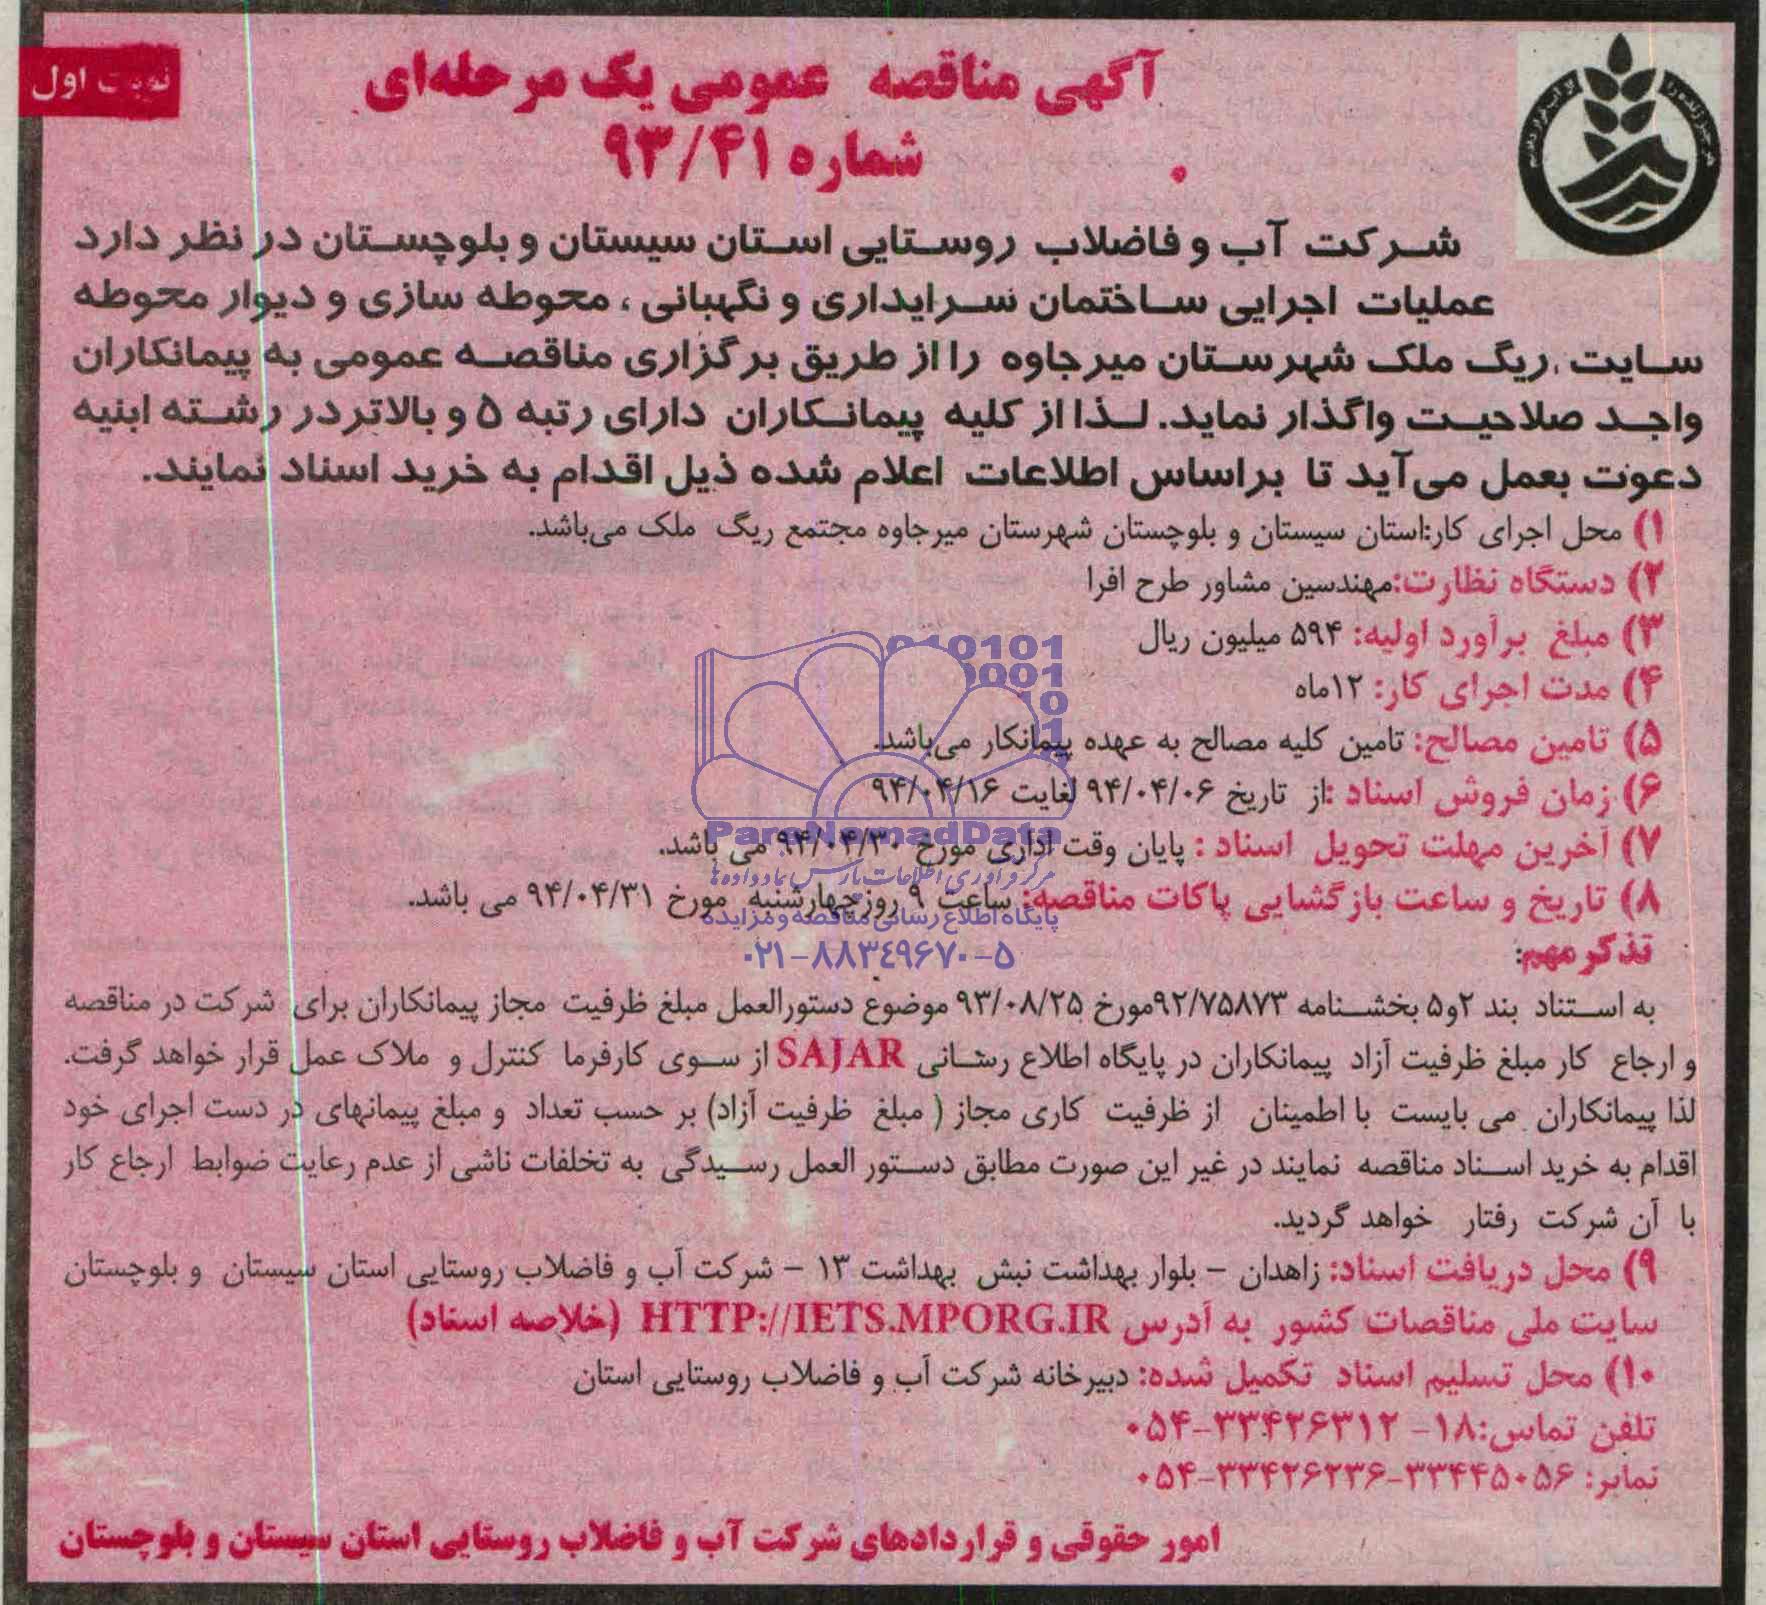 نوبت اول
آگهی مناقصه عمومی یک مرحله‌ای
شماره ۹۳/۴۱
شرکت آب و فاضلاب روستایی استان سیستان و بلوچستان در نظر دارد
عملیات اجرایی ساختمان سرایداری و نگهبانی ، محوطه سازی و دیوار محوطه
سایت ریگ ملک شهرستان میرجاوه را از طریق برگزاری مناقصه عمومی به پیمانکاران
واجد صلاحیت واگذار نماید. لذا از کلیه پیمانکاران دارای رتبه ۵ و بالاتر در رشته ابنیه
دعوت بعمل می‌آید تا براساس اطلاعات اعلام شده ذیل اقدام به خرید اسناد نمایند.
۱) محل اجرای کار:استان سیستان و بلوچستان شهرستان میرجاوه مجتمع ریگ ملک می‌باشد.
۲) دستگاه نظارت:مهندسین مشاور طرح افرا
۳) مبلغ برآورد اولیه: ۵۹۴ میلیون ریال
۴) مدت اجرای کار: ۱۲ماه
۵) تامین مصالح: تامین کلیه مصالح به عهده پیمانکار می‌باشد.
۶) زمان فروش اسناد :از تاریخ ۹۴/۰۴/۰۶ لغایت ۹۴/۰۴/۱۶
۷) آخرین مهلت تحویل اسناد : پایان وقت اداری مورخ ۹۴/۰۴/۳۰ می باشد.
۸) تاریخ و ساعت بازگشایی پاکات مناقصه: ساعت ۹ روز چهارشنبه مورخ ۹۴/۰۴/۳۱ می باشد.
تذکر مهم:
به استناد بند ۲و۵ بخشنامه ۹۲/۷۵۸۷۳مورخ ۹۳/۰۸/۲۵ موضوع دستورالعمل مبلغ ظرفیت مجاز پیمانکاران برای شرکت در مناقصه
و ارجاع کار مبلغ ظرفیت آزاد پیمانکاران در پایگاه اطلاع رسانی SAJAR از سوی کارفرما کنترل و ملاک عمل قرار خواهد گرفت.
لذا پیمانکاران می بایست با اطمینان از ظرفیت کاری مجاز ( مبلغ ظرفیت آزاد) بر حسب تعداد و مبلغ پیمانهای در دست اجرای خود
اقدام به خرید اسناد مناقصه نمایند در غیر این صورت مطابق دستور العمل رسیدگی به تخلفات ناشی از عدم رعایت ضوابط ارجاع کار
با آن شرکت رفتار خواهد گردید.
۹) محل دریافت اسناد: زاهدان – بلوار بهداشت نبش بهداشت ۱۳ – شرکت آب و فاضلاب روستایی استان سیستان و بلوچستان
سایت ملی مناقصات کشور به آدرس HTTP://IETS.MPORG.IR (خلاصه اسناد)
۱۰) محل تسلیم اسناد تکمیل شده: دبیرخانه شرکت آب و فاضلاب روستایی استان
تلفن تماس:۱۸- ۳۳۴۲۶۳۱۲-۰۵۴
نمابر: ۳۳۴۴۵۰۵۶-۳۳۴۲۶۲۳۶-۰۵۴
امور حقوقی و قراردادهای شرکت آب و فاضلاب روستایی استان سیستان و بلوچستان
010101
0001
10
1
ParsNamadData
مرکز فرآوری اطلاعات پارس نماد داده‌ها
پایگاه اطلاع رسانی مناقصه و مزایده
۰۲۱-۸۸۳۴۹۶۷۰-۵